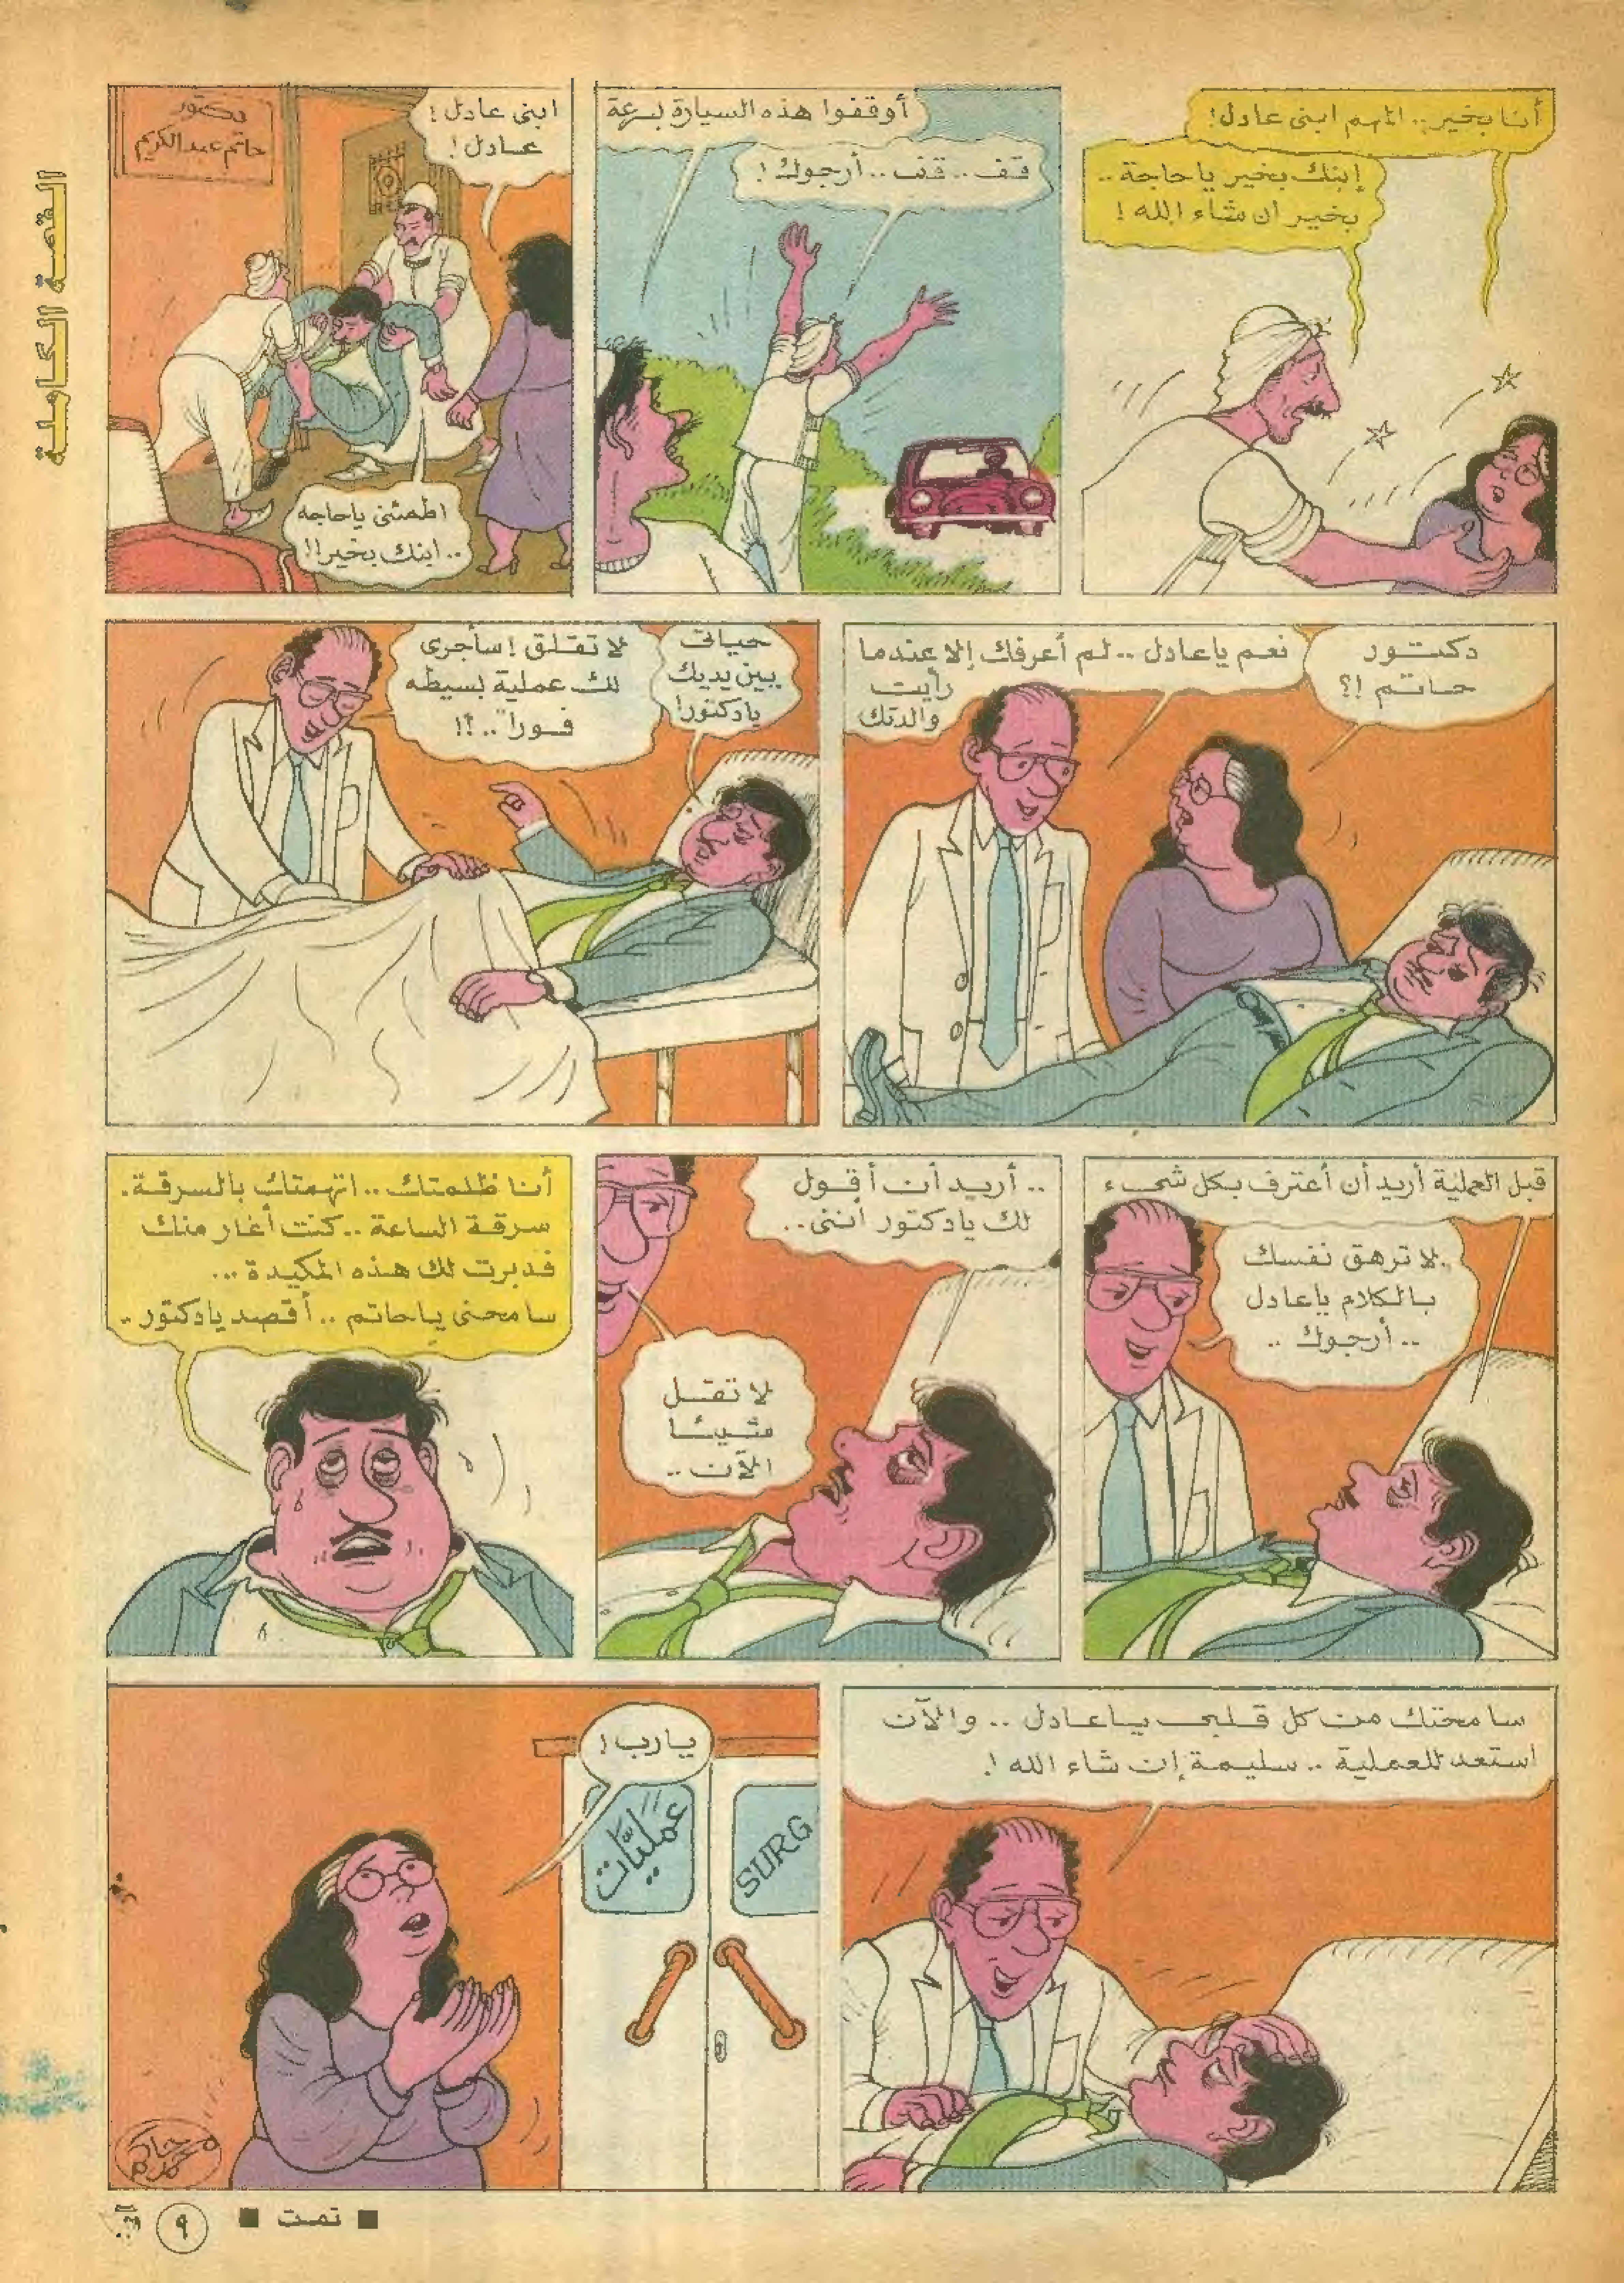 القصة الكاملة
أنا بخير.. المهم ابنى عادل!
إبنك بخير يا حاجة..
بخير ان شاء الله!
أوقفوا هذه السيارة بسرعة
قف.. قف.. أرجوك!
ابنى عادل!
عادل!
دكتور
حاتم عبد الكريم
اطمئنى ياحاجه
.. ابنك بخير!!
دكتور
حاتم !؟
نعم ياعادل.. لم أعرفك إلا عندما
رأيت
والدتك
حياتى
بين يديك
يادكتور!
لا تقلق! سأجرى
لك عملية بسيطه
فوراً..!؟
قبل العملية أريد أن أعترف بكل شىء
.لا ترهق نفسك
بالكلام ياعادل
.. أرجوك..
.. أريد أن أقول
لك يادكتور أننى..
لا تقل
شيئا
الآن..
أنا ظلمتك.. اتهمتك بالسرقة.
سرقة الساعة.. كنت أغار منك
فدبرت لك هذه المكيدة...
سامحنى ياحاتم.. أقصد يادكتور..
سامحتك من كل قلبى ياعادل.. والآن
استعد للعملية.. سليمة إن شاء الله!
يارب!
عمليّات
SURG
■ تمت ■
٩